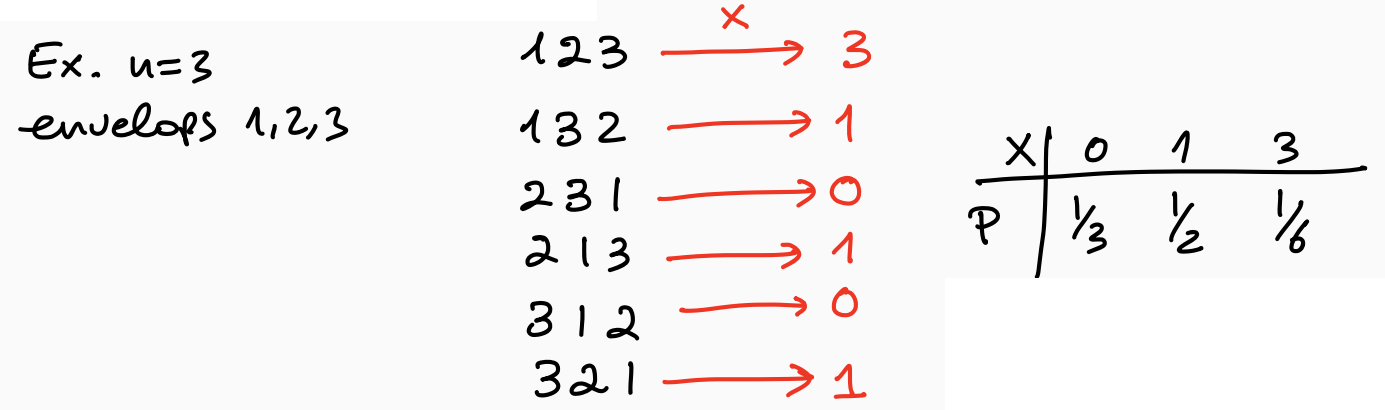 Ex. n=3
envelops 1,2,3
X
123 → 3
132 → 1
231 → 0
213 → 1
312 → 0
321 → 1
X | 0 1 3
P | 1/3 1/2 1/6